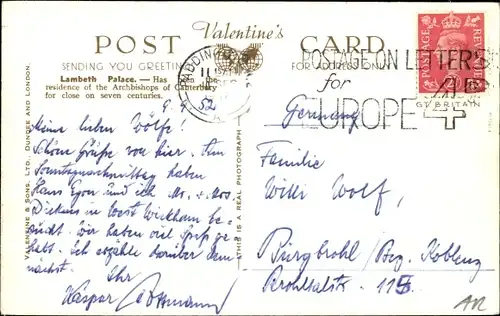 POST Valentine's CARD
SENDING YOU GREETING FOR ADDRESS ONLY
Lambeth Palace.—Has been the
residence of the Archbishops of Canterbury
for close on seven centuries.
PADDINGTON
52
POSTAGE ON LETTERS
for
EUROPE 4
POSTAGE REVENUE
GT BRITAIN
VALENTINE & SONS, LTD., DUNDEE AND LONDON.
THIS IS A REAL PHOTOGRAPH
Meine lieben Wölfe,
Schöne Grüße von hier. Am
Sonntagnachmittag haben
Hans Egon und ich Mr. + Mrs.
Dickins in West Wickham be-
sucht. Wir haben viel Spaß ge-
habt. Ich erzähle darüber dem-
nächst.
Ihr
Kaspar
Germany
Familie
Willi Wolf,
Burgbrohl / Bez. Koblenz
Brohltalstr. 115